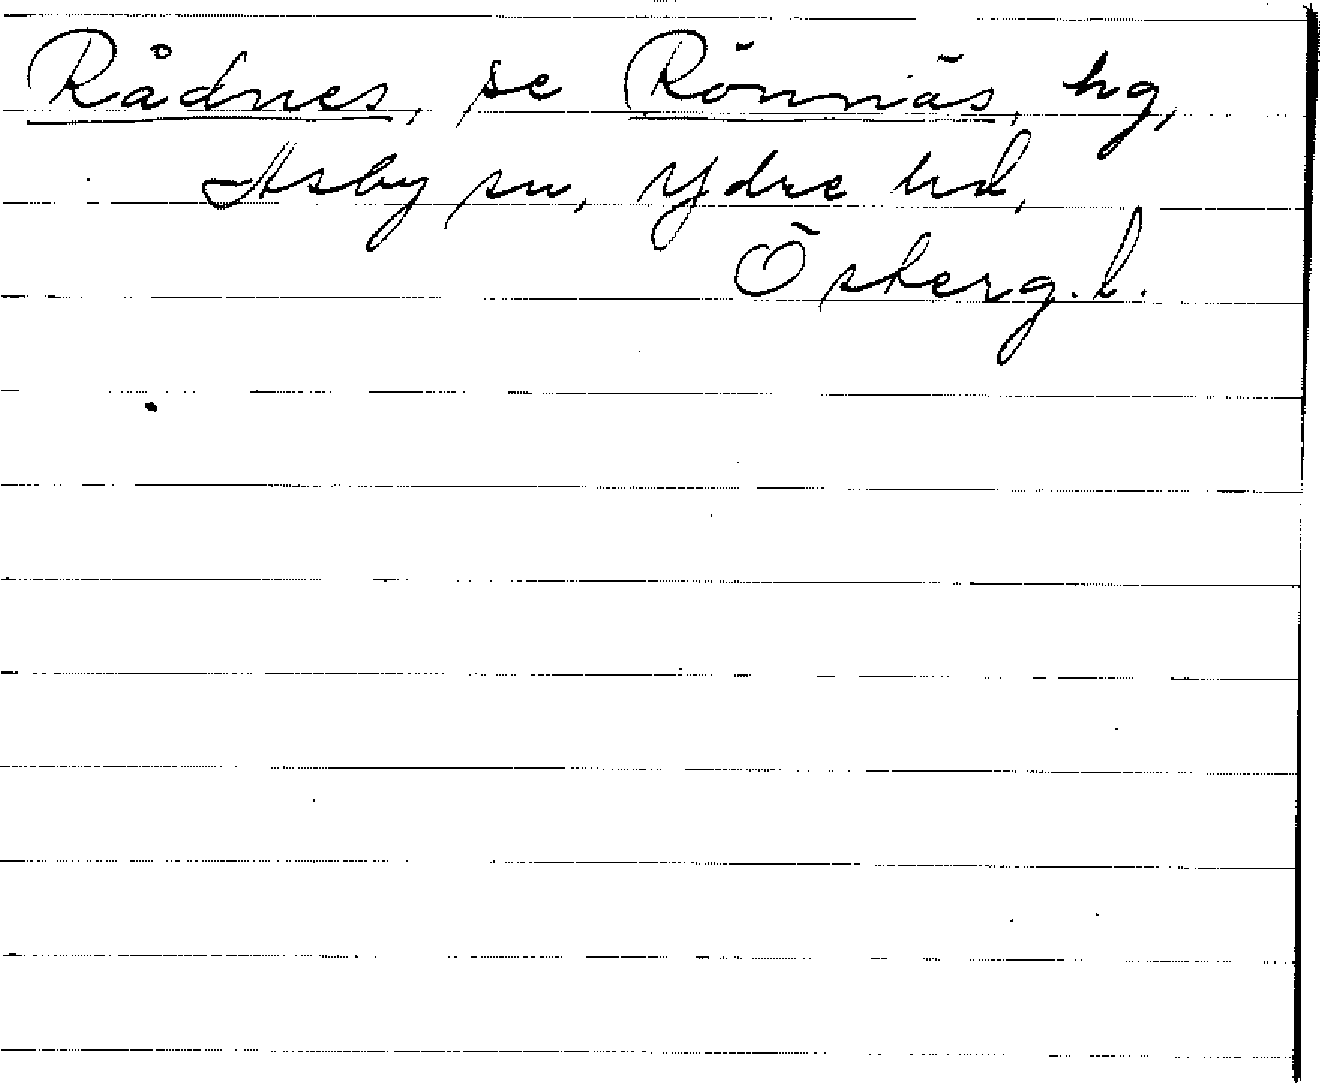 Rådnes, se Rönnäs, hg,
Asby sn, Ydre hd,
Österg. l.